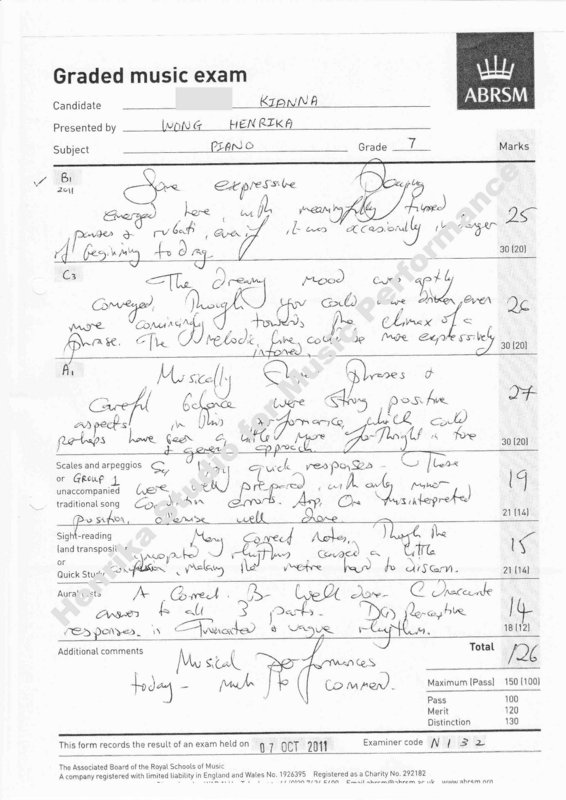 Graded music exam
ABRSM
Candidate KIANNA
Presented by WONG HENRIKA
Subject PIANO Grade 7 Marks
B1 2011
Some expressive shaping
emerged here, with meaningfully timed
pauses & rubati, even if it was occasionally in danger
of beginning to drag.
25
30 (20)
C3
The dreamy mood was aptly
conveyed, though you could have driven even
more convincingly towards the climax of a
phrase. The melodic line could be more expressively
intoned.
26
30 (20)
A1
Musically phrases &
careful balance were strong positive
aspects in this performance, which could
perhaps have been a little more forthright in tone
& general approach.
27
30 (20)
Scales and arpeggios
or GROUP 1
unaccompanied
traditional song
quick responses - These
were well prepared, with only minor
errors. Arp. One misinterpreted
position, otherwise well done.
19
21 (14)
Sight-reading
(and transposi
or
Quick Study
Many correct notes, though the
syncopated rhythms caused a little
confusion, making the metre hard to discern.
15
21 (14)
Aural tests
A Correct. B Well done. C Inaccurate
answer to all 3 parts. D(i) Perceptive
responses. ii Truncated & vague rhythm.
14
18 (12)
Additional comments
Musical performances
today - much to commend.
Total 126
Maximum (Pass) 150 (100)
Pass 100
Merit 120
Distinction 130
This form records the result of an exam held on 07 OCT 2011 Examiner code N132
The Associated Board of the Royal Schools of Music
A company registered with limited liability in England and Wales No. 1926395 Registered as a Charity No. 292182
Henrika Studio for Music Performance